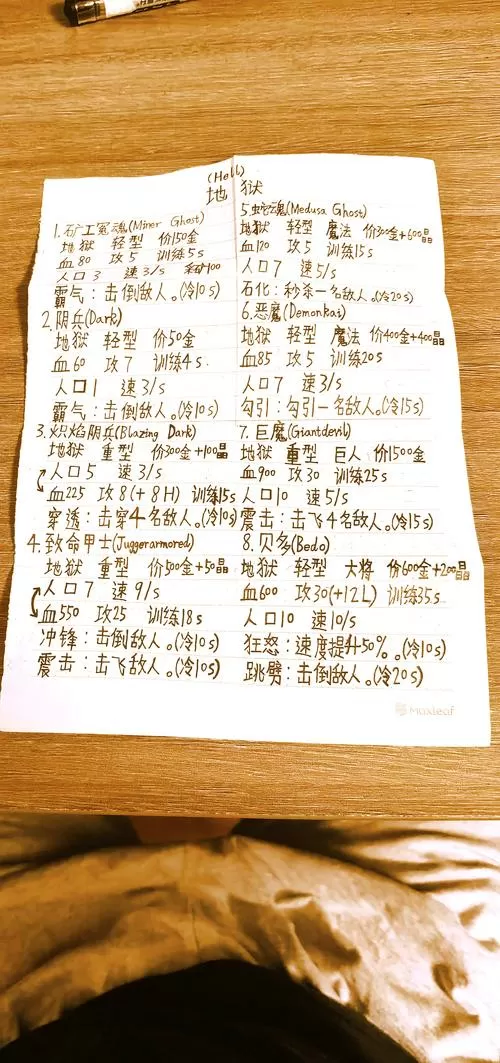 (Hell)
地狱
1.矿工冤魂(Miner Ghost)
地狱 轻型 价150金
血80 攻5 训练5s
人口3 速3/s
霸气：击倒敌人。(冷10s)
2.阴兵(Dark)
地狱 轻型 价50金
血60 攻7 训练4s
人口1 速3/s
霸气：击倒敌人。(冷10s)
3.炽焰阴兵(Blazing Dark)
地狱 重型 价300金+100晶
人口5 速3/s
血225 攻8(+8H) 训练15s
穿透：击穿4名敌人。(冷10s)
4.致命甲士(Juggerarmored)
地狱 重型 价500金+50晶
人口7 速9/s
血550 攻25 训练18s
冲锋：击倒敌人。(冷10s)
震击：击飞敌人。(冷10s)
5.蛇魂(Medusa Ghost)
地狱 轻型 魔法 价300金+600晶
血120 攻5 训练15s
人口7 速5/s
石化：秒杀一名敌人。(冷20s)
6.恶魔(Demonkai)
地狱 轻型 魔法 价400金+400晶
血85 攻5 训练20s
人口7 速3/s
勾引：勾引一名敌人。(冷15s)
7.巨魔(Giantdevil)
地狱 重型 巨人 价1500金
血900 攻30 训练25s
人口10 速5/s
震击：击飞4名敌人。(冷15s)
8.贝多(Bedo)
地狱 轻型 大将 价600金+200晶
血600 攻30(+12L) 训练35s
人口10 速10/s
狂怒：速度提升50%。(冷10s)
跳劈：击倒敌人。(冷20s)
Maxleaf